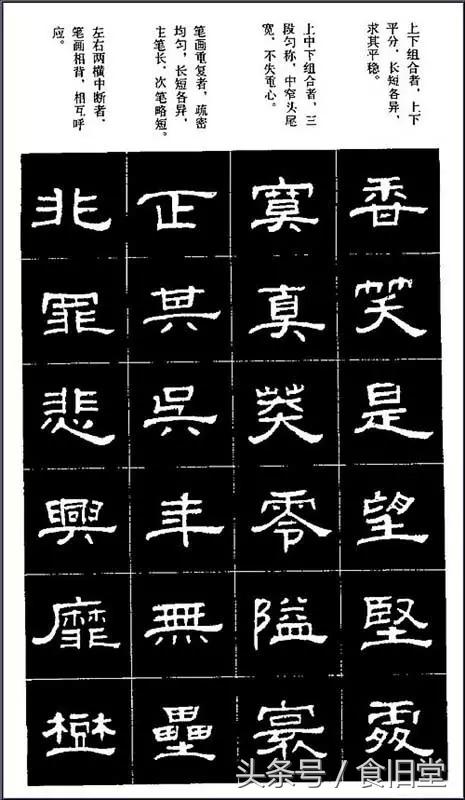 上下组合者，上下
平分，长短各异，
求其平稳。
上中下组合者，三
段匀称，中窄头尾
宽，不失重心。
笔画重复者，疏密
均匀，长短各异，
主笔长，次笔略短。
左右两横中断者，
笔画相背，相互呼
应。
香笑是望堅
寞真葵零隘
正其吳年無壘
非罪悲興靡
头条号 / 食旧堂